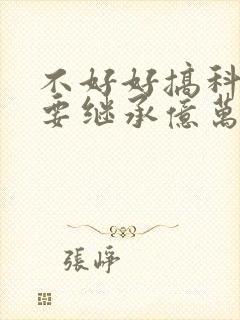 不好好搞科
要继承億萬
張崢